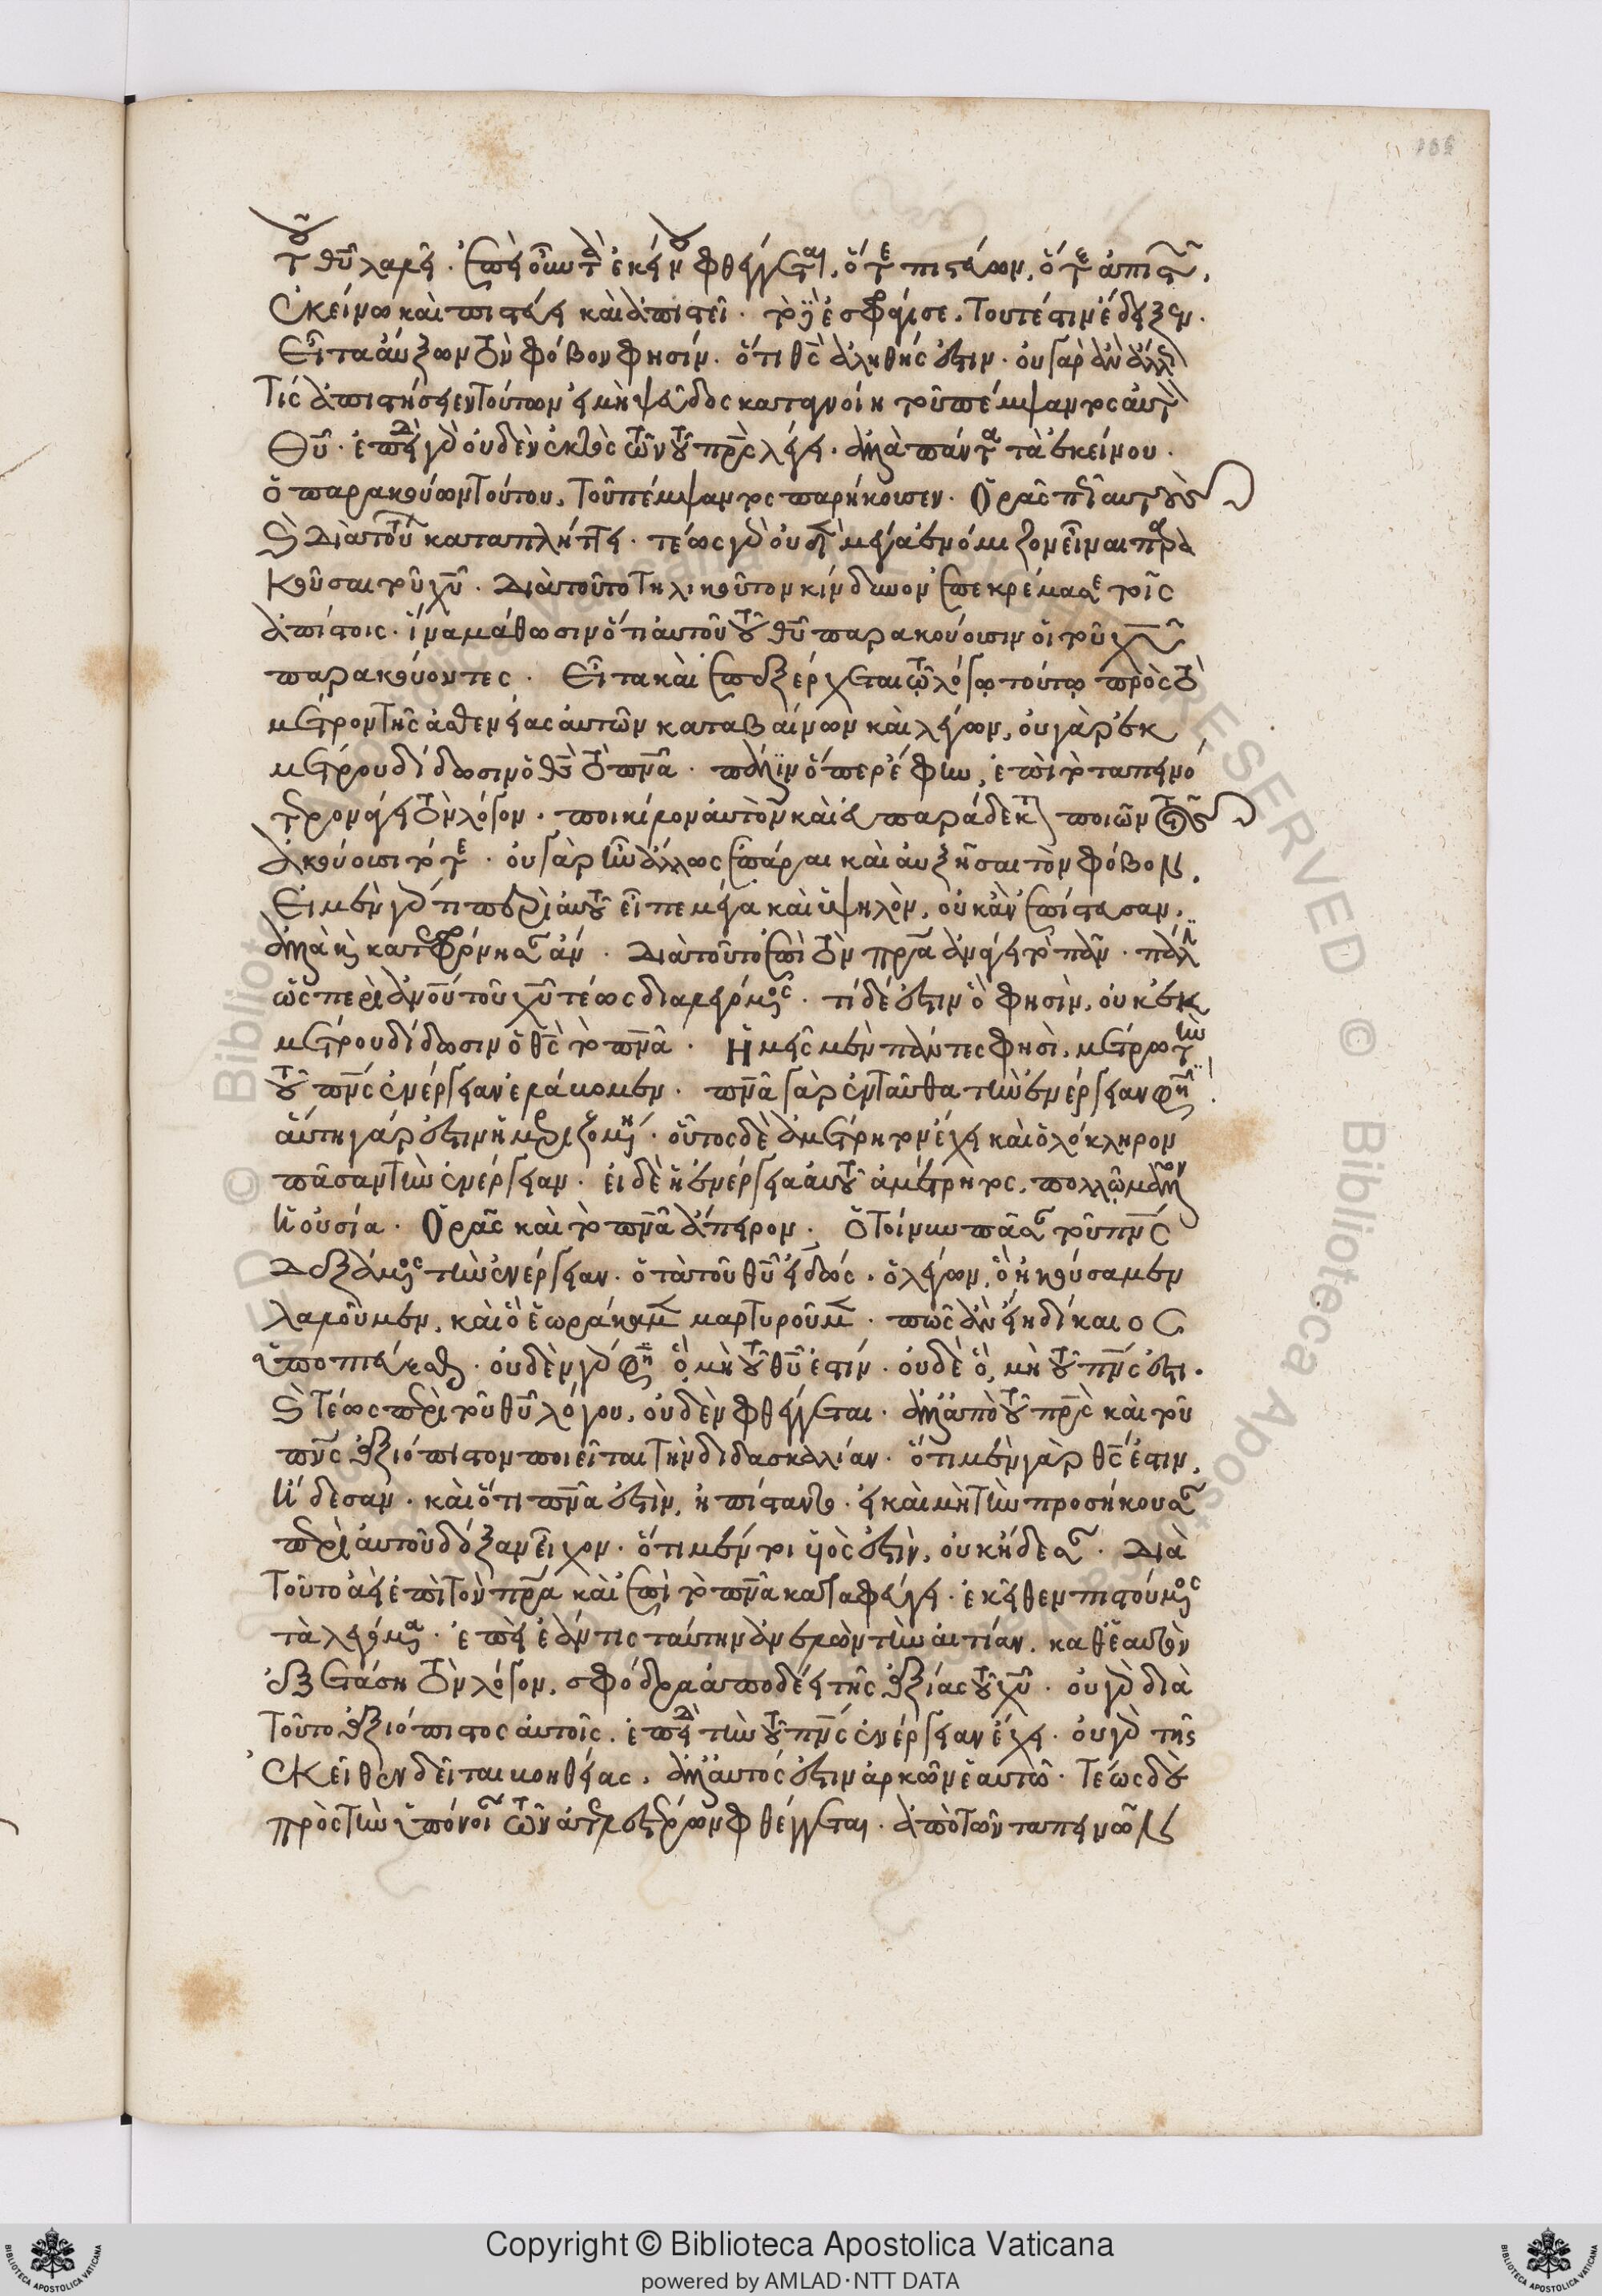 τοῦ θῦ λαλεῖ. ἐπεὶ οὖν τὰ ἐκείνου φθέγγεται, ὅ τε πιστεύων, ὅ τε ἀπιστῶν,
ἐκείνω καὶ πιστεύει καὶ ἀπιστεῖ. τὸ ἐσφράγισε, τουτέστιν ἔδειξεν.
Εἶτα αὔξων τὸν φόβον φησίν. ὅτι θς ἀληθής ἐστιν. οὐ γὰρ ἂν ἄλλως
τίς ἀπιστήσειεν τούτων εἰ μὴ ψεῦδος καταγνοίη τοῦ πέμψαντος αὐτὸν
Θῦ. ἐπειδὴ γὰρ οὐδὲν ἐκτὸς τῶν τοῦ πρς λέγει. ἀλλὰ πάντα τὰ ἐκείνου.
ὁ παρακούων τούτου, τοῦ πέμψαντος παρήκουσεν. Ὁρᾶς πῶς αὐτοὺς
καὶ διὰ τούτου καταπλήττει. τέως γὰρ οὐδὲν μέγα ἐνόμιζον εἶναι παρα
κοῦσαι τοῦ χῦ. Διὰ τοῦτο τηλικοῦτον κίνδυνον ἐπεκρέμασε τοῖς
ἀπίστοις. ἵνα μάθωσιν ὅτι αὐτοῦ τοῦ θῦ παρακούουσιν οἱ τοῦ χῦ
παρακούοντες. Εἶτα καὶ ἐπεξέρχεται τῷ λόγῳ τούτῳ πρὸς τὸ
μέτρον τῆς ἀσθενείας αὐτῶν καταβαίνων καὶ λέγων, οὐ γὰρ ἐκ
μέτρου δίδωσιν ὁ θς τὸ πνα. πάλιν ὅπερ ἔφην, ἐπὶ τὸ ταπεινό
τερον ἄγει τὸν λόγον. ποικίλον αὐτὸν καὶ εὐπαράδεκτον ποιῶν τοῖς
ἀκούουσι τότε. οὐ γὰρ ἦν ἄλλως ἐπᾶραι καὶ αὐξῆσαι τὸν φόβον.
Εἰ μὲν γάρ τι περὶ αὐτοῦ εἶπε μέγα καὶ ὑψηλὸν, οὐκ ἂν ἐπίστευσαν,
ἀλλὰ κἂν κατεφρόνησαν ἄν. Διὰ τοῦτο ἐπὶ τὸν πρα ἀνάγει τὸ πᾶν. πάλιν
ὡς περὶ ἀνου τοῦ χῦ τέως διαλεγόμενος. τί δέ ἐστιν ὅ φησιν, οὐκ ἐκ
μέτρου δίδωσιν ὁ θς τὸ πνα. Ἡμεῖς μὲν πάντες φησὶ, μέτρω τὴν
τοῦ πνς ἐνέργειαν ἐλάβομεν. πνα γὰρ ἐνταῦθα τὴν ἐνέργειαν φησιν.
αὕτη γάρ ἐστιν ἡ μεριζομένη. οὗτος δὲ ἀμέτρητον ἔχει καὶ ὁλόκληρον
πᾶσαν τὴν ἐνέργειαν. εἰ δὲ ἡ ἐνέργεια αὐτοῦ ἀμέτρητος, πολλῷ μᾶλλον
ἡ οὐσία. Ὁρᾶς καὶ τὸ πνα ἄπειρον. Ὁ τοίνυν πᾶσαν τοῦ πνς
δεξάμενος τὴν ἐνέργειαν. ὁ τὰ τοῦ θῦ εἰδώς. ὁ λέγων, ὃ ἠκούσαμεν
λαλοῦμεν, καὶ ὃ ἑωράκαμεν μαρτυροῦμεν. πῶς ἂν εἴη δίκαιος
ὑποπτεύεσθαι. οὐδὲν γάρ φησιν ὃ μὴ τοῦ θῦ ἐστίν. οὐδὲ ὃ μὴ τοῦ πνς ἐστι.
καὶ τέως περὶ τοῦ θῦ λόγου, οὐδὲν φθέγγεται. ἀλλ' ἀπὸ τοῦ πρς καὶ τοῦ
πνς ἀξιόπιστον ποιεῖται τὴν διδασκαλίαν. ὅτι μὲν γὰρ θς ἐστιν,
ἤδεσαν. καὶ ὅτι πνα ἐστὶν, ἠπίσταντο. εἰ καὶ μὴ τὴν προσήκουσαν
περὶ αὐτοῦ δόξαν εἶχον. ὅτι μέντοι υἱός ἐστὶν, οὐκ ἤδεσαν. Διὰ
τοῦτο ἀεὶ ἐπὶ τὸν πρα καὶ ἐπὶ τὸ πνα καταφεύγει. ἐκεῖθεν πιστούμενος
τὰ λεγόμενα. ἐπεὶ ἐάν τις ταύτην ἀνελὼν τὴν αἰτίαν, καθ' ἑαυτὸν
ἐξετάση τὸν λόγον, σφόδρα ἀποδεῖ τῆς ἀξίας τοῦ χῦ. οὐ γὰρ διὰ
τοῦτο ἀξιόπιστος αὐτοῖς, ἐπειδὴ τὴν τοῦ πνς ἐνέργειαν ἔχει. οὐ γὰρ τῆς
ἐκεῖθεν δεῖται βοηθείας, ἀλλ' αὐτός ἐστιν ἀρκῶν ἑαυτῶ. Τέως δὲ
πρὸς τὴν ὑπόνοιαν τῶν ἀτελεστέρων φθέγγεται. ἀπὸ τῶν ταπεινῶν